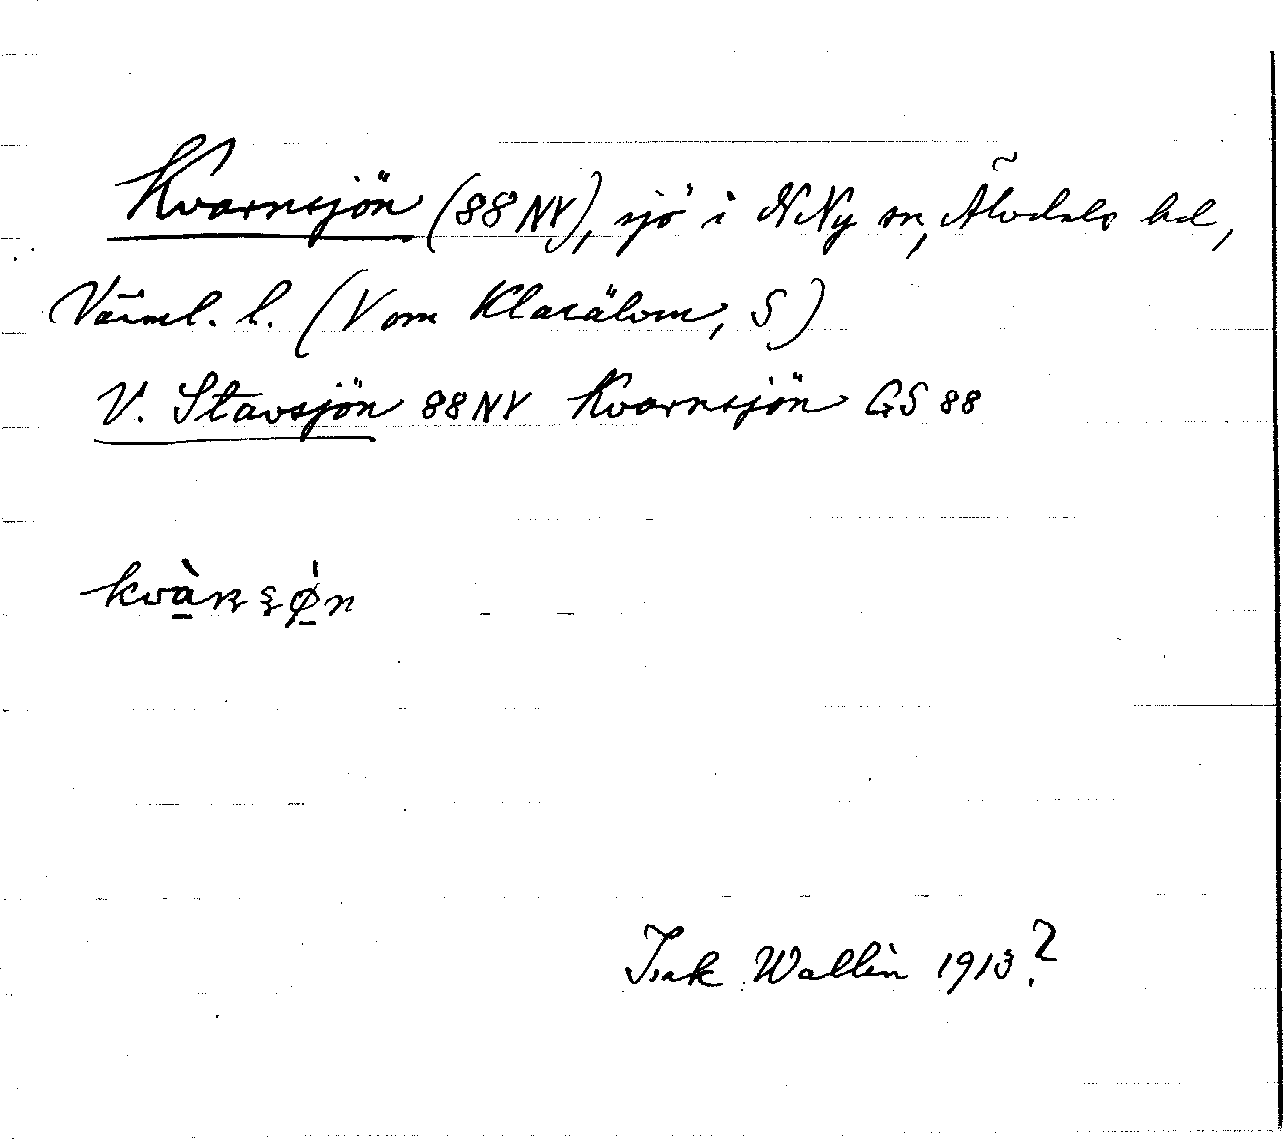 Kvarnsjön (88 NV), sjö i N Ny sn, Älvdals hd,
Värml. l. (V om Klarälven, S)
V. Stavsjön 88 NV Kvarnsjön GS 88
kvànʂǿn
Isak Wallin 1913?